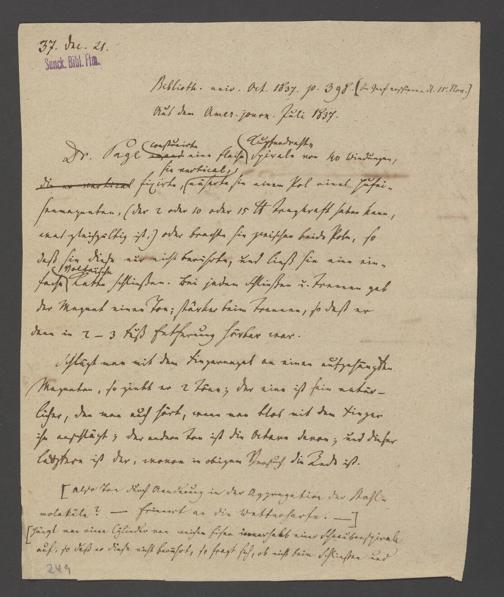 37. Dec. 21.
Senck. Bibl. Ffm.
Biblioth. univ. Oct. 1837. p. 398. (in Genf erschienen d. 15. Nov.)
Aus dem Amer. journ. Juli 1837.
Dr. Page construirte eine flache Kupferdraht Spirale von 40 Windungen,
fixirte sie vertical, näherte sie einen Pol eines Hufei-
senmagneten, (der 2 oder 10 oder 15 ℔ Tragkraft haben kann,
was gleichgültig ist.) oder brachte sie zwischen beide Pole, so
daß sie diese nur nicht berührte, und ließ sie eine ein-
fache Voltaische Kette schließen. Bei jedem Schließen u. Trennen gab
der Magnet einen Ton; stärker beim Trennen, so daß er
dann in 2 – 3 Fuß Entfernung hörbar war.
Schlägt man mit dem Fingernagel an einen aufgehängten
Magneten, so giebt er 2 Töne; der eine ist sein natür-
licher, den man auch hört, wenn man blos mit dem Finger
ihn anschlägt; der andere Ton ist die Octave davon; und dieser
letztere ist der, wovon in obigem Versuch die Rede ist.
[Also Ton durch Aenderung in der Aggregation der Stahl-
moleküle? — Erinnert an die Wetterharfe. —]
[Hängt man einen Cylinder von weichem Eisen innerhalb einer Schraubenspirale
auf, so daß er diese nicht berührt, so fragt sich, ob nicht beim Schließen und
249